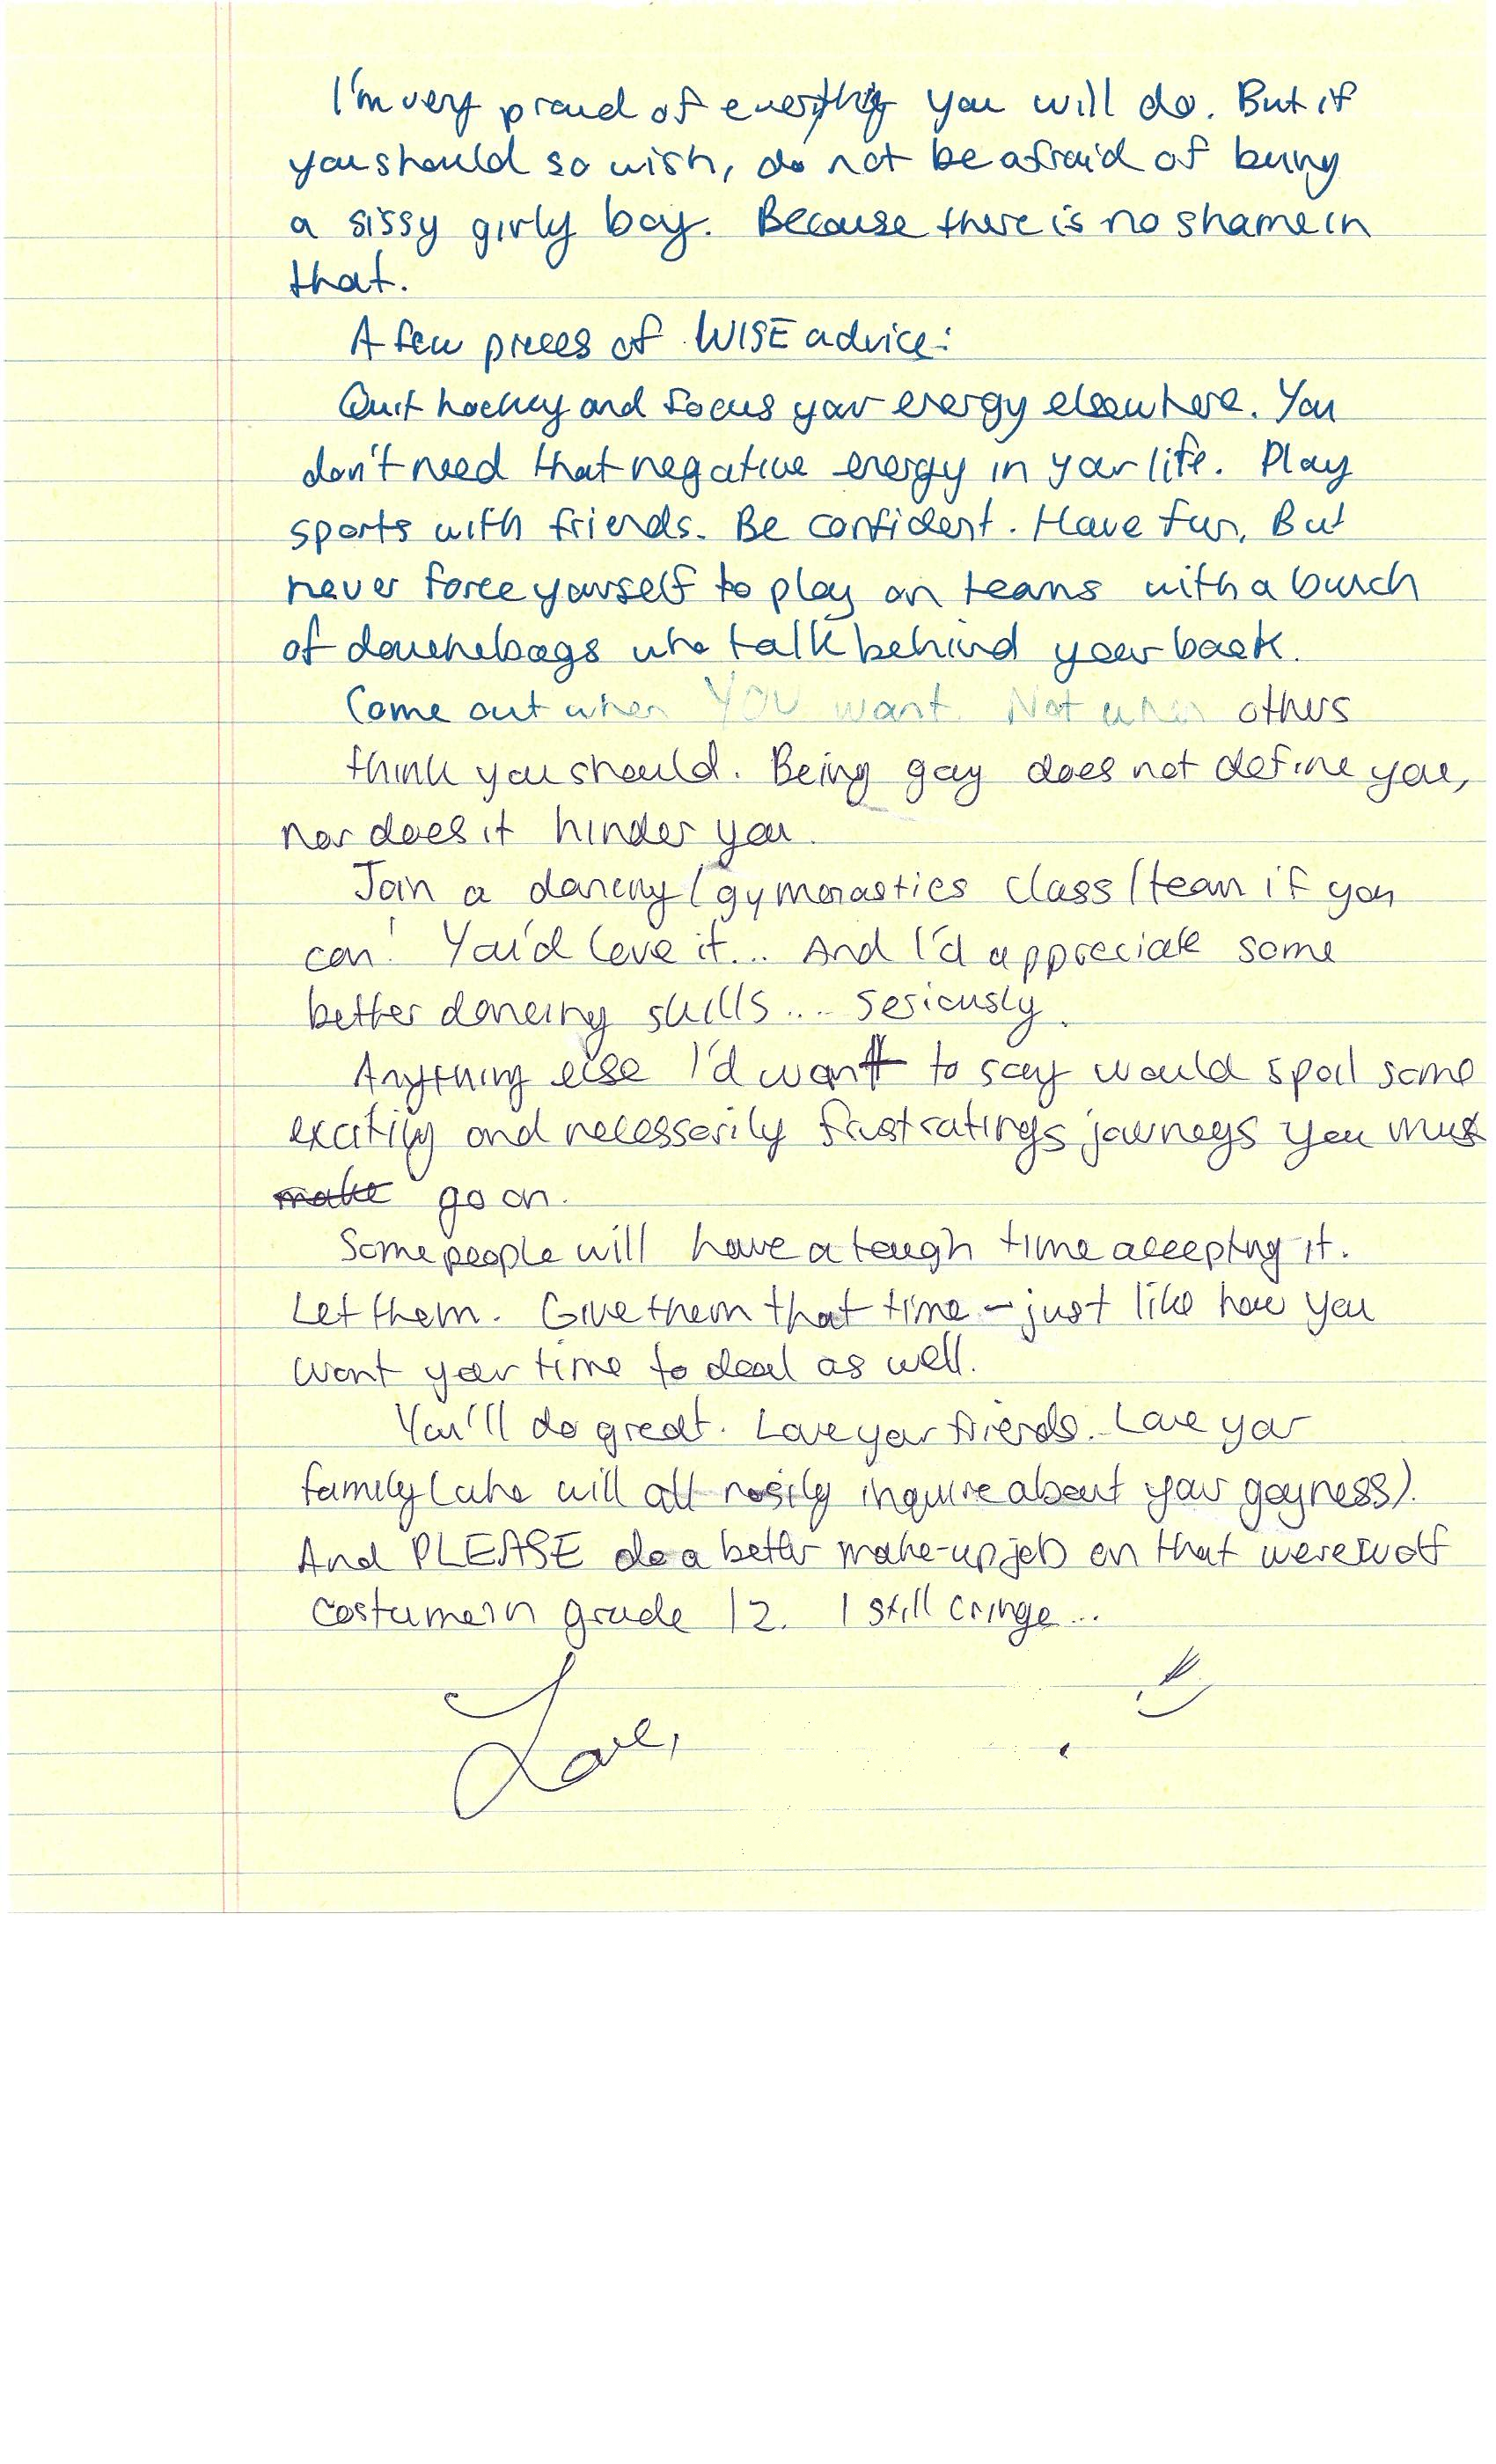 I'm very proud of everything you will do. But if
you should so wish, do not be afraid of being
a sissy girly boy. Because there is no shame in
that.
A few pieces of WISE advice:
Quit hockey and focus your energy elsewhere. You
don't need that negative energy in your life. Play
sports with friends. Be confident. Have fun. But
never force yourself to play on teams with a bunch
of douchebags who talk behind your back.
Come out when YOU want. Not when others
think you should. Being gay does not define you,
nor does it hinder you.
Join a dancing/gymnastics class/team if you
can! You'd love it... And I'd appreciate some
better dancing skills.... seriously.
Anything else I'd want to say would spoil some
exciting and necessarily frustratings journeys you must
make go on.
Some people will have a tough time accepting it.
Let them. Give them that time - just like how you
want your time to deal as well.
You'll do great. Love your friends. Love your
family (who will all nosily inquire about your gayness).
And PLEASE do a better make-up job on that werewolf
costume in grade 12. I still cringe...
Love,